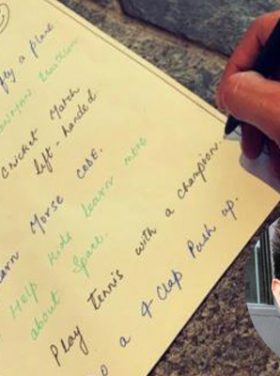 fly a plane
Cricket Match
left-handed
Morse code.
Help kids learn more
about Space.
Play Tennis with a champion.
a 4 Clap Push up.